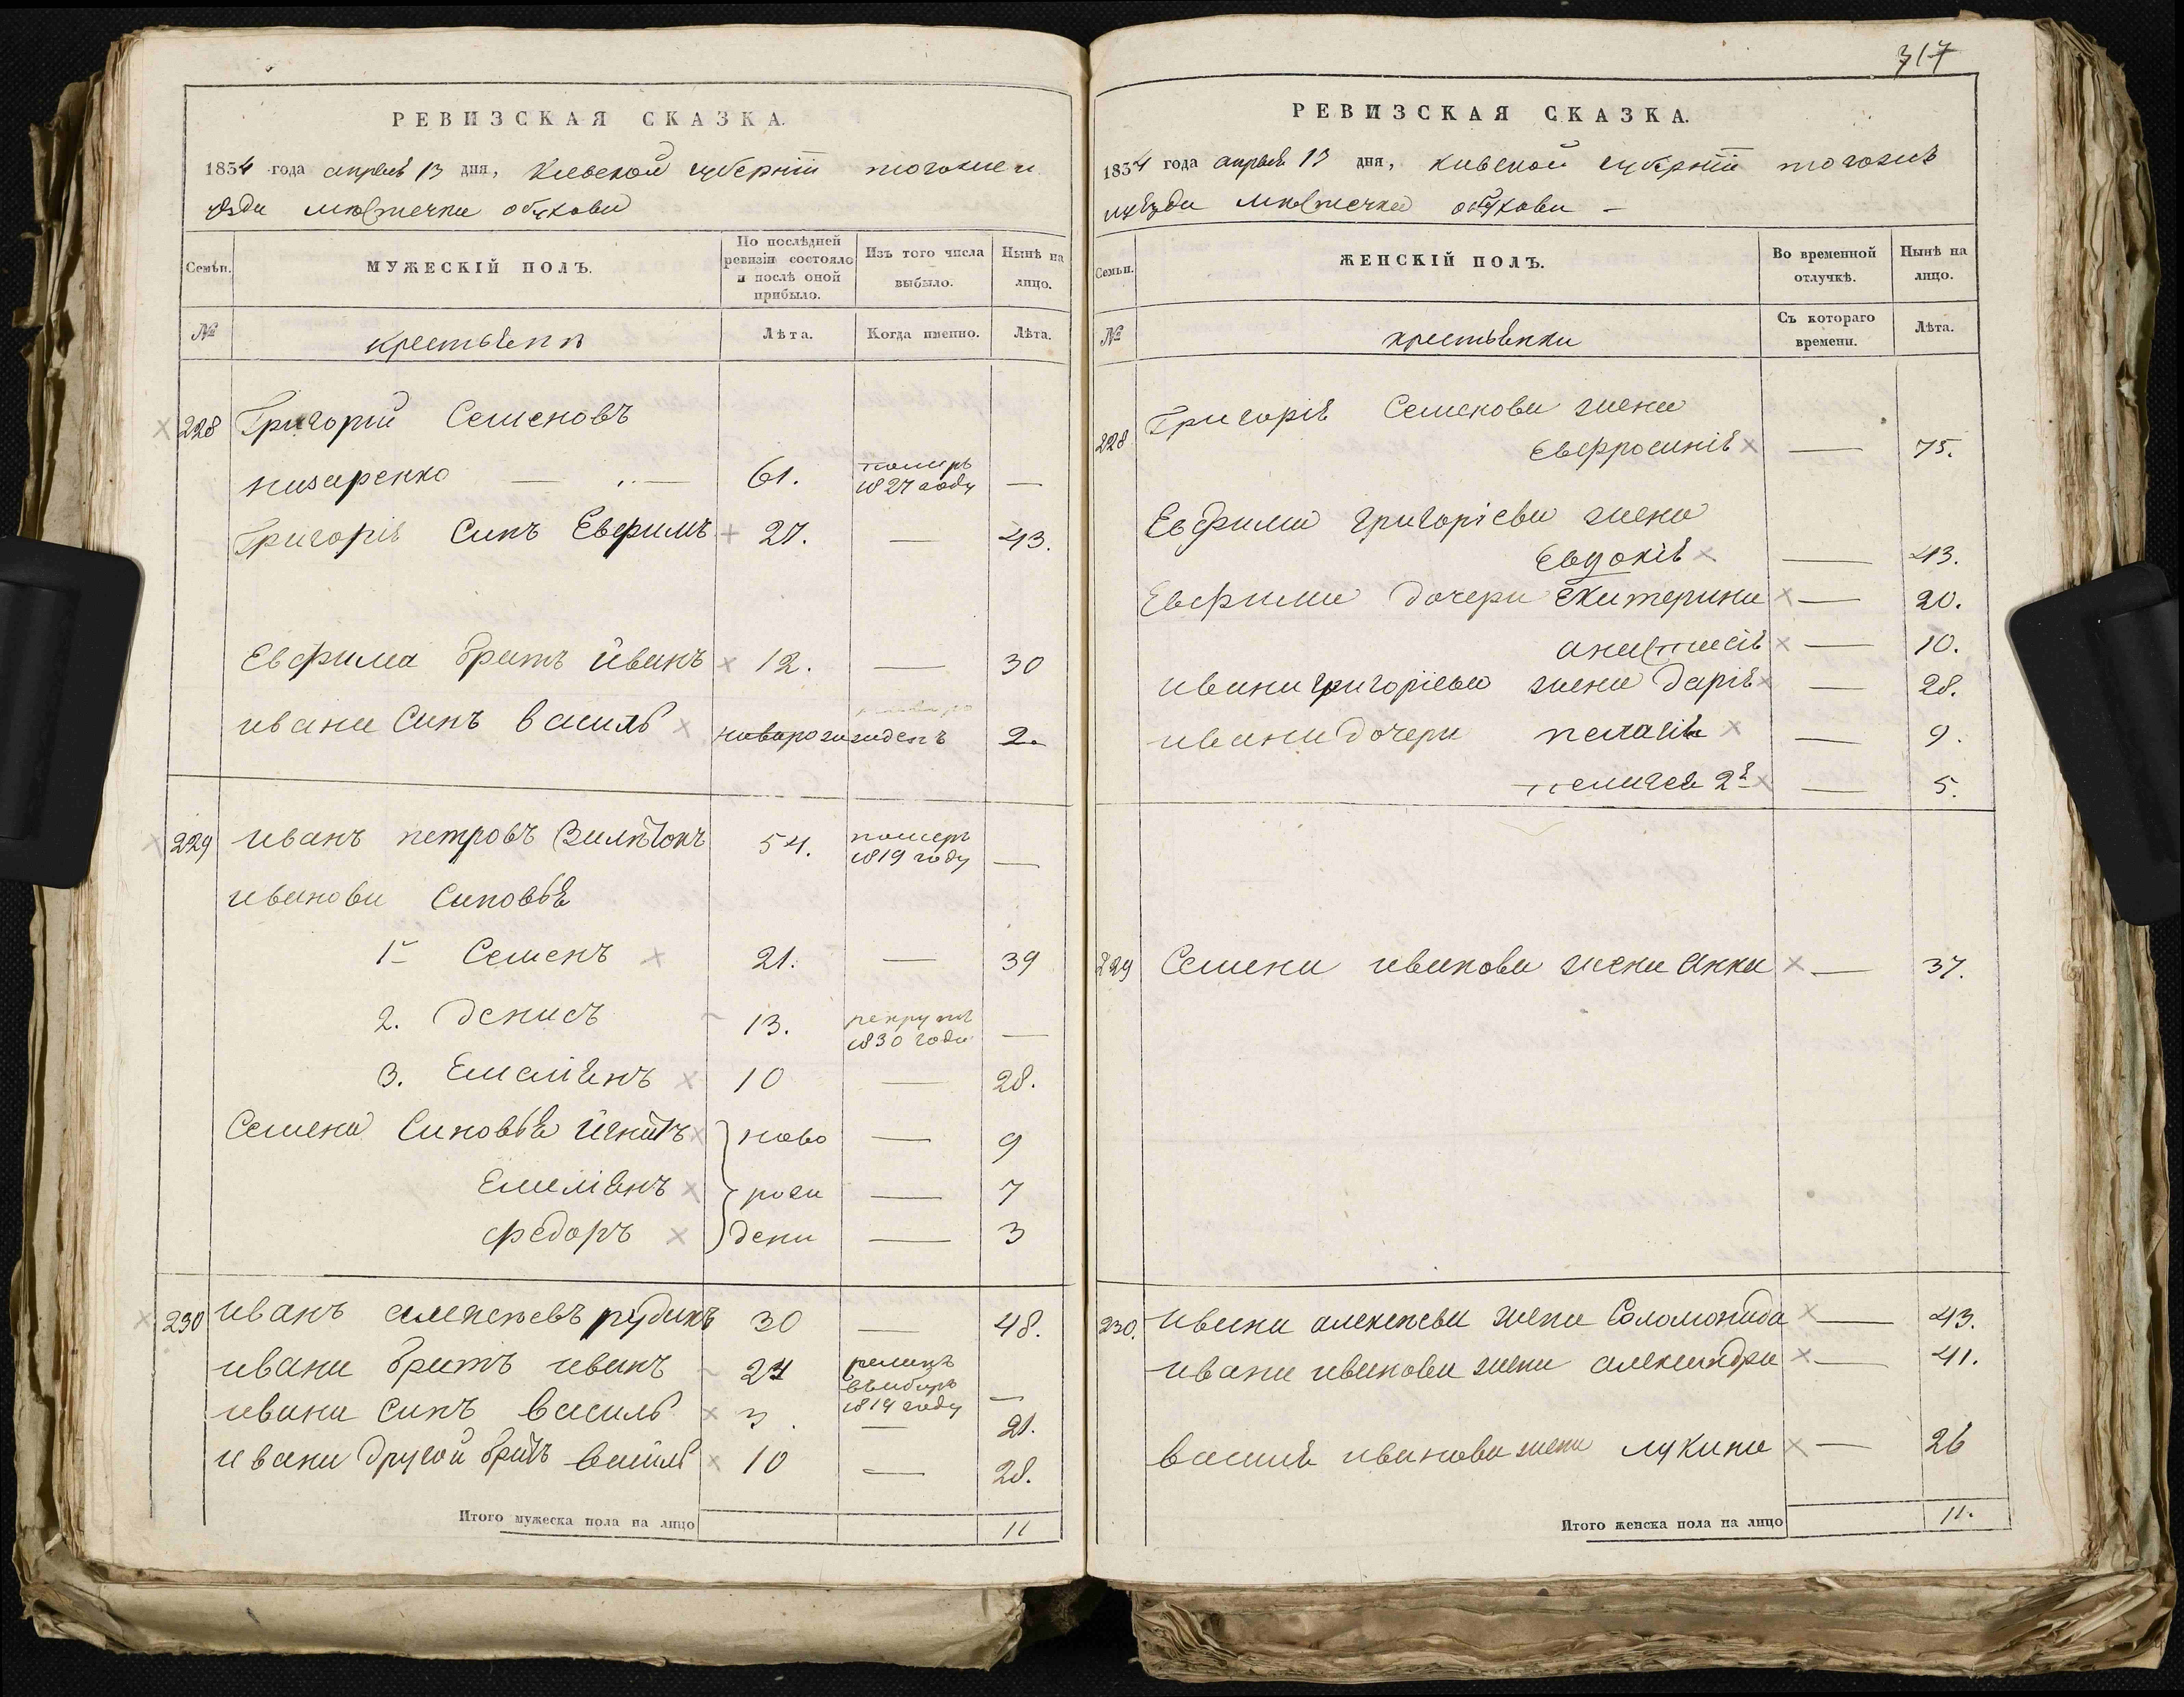 317
РЕВИЗСКАЯ СКАЗКА.
1834 года апреля 13 дня, Киевской губернїи тогожъ
уѣзда местечка обухова
Семьи.
МУЖЕСКІЙ ПОЛЪ.
По послѣдней ревизіи состояло и послѣ оной прибыло.
Изъ того числа выбыло.
Нынѣ на лицо.
№
крестьяне
Лѣта.
Когда именно.
Лѣта.
228 Григорій Семеновъ
писаренко — 61. померъ 1827 году —
Григорія Синъ Евфимъ 27. — 43.
Евфима братъ йванъ 12. — 30
ивана Синъ василь новорожденъ 2.
229 иванъ петровъ 54. померъ 1819 году —
иванови Синовья
1й Семенъ 21. — 39
2. денисъ 13. рекрутъ 1830 года —
3. Емеліянъ 10 — 28.
Семена Синовья Игнатъ ново — 9
Емеліянъ рож — 7
федоръ дени — 3
230 иванъ алексѣевъ рудикъ 30 — 48.
ивана братъ иванъ 24 1819 году —
ивана Синъ василь 3. — 21.
ивана другой братъ василь 10 — 28.
Итого мужеска пола на лицо 11
РЕВИЗСКАЯ СКАЗКА.
1834 года апреля 13 дня, киевской губернїи тогожъ
уѣзда местечка обухова —
Семьи.
ЖЕНСКІЙ ПОЛЪ.
Во временной отлучкѣ.
Нынѣ на лицо.
№
крестьянки
Съ котораго времени.
Лѣта.
228 Григорія Семенова жена
Евфросинія — 75.
Евфима григоріева жена
Евдокія — 43.
Евфима дочери Екатерина — 20.
анастасія — 10.
ивана григоріева жена дарія — 28.
ивана дочери пелагія — 9.
пелагея 2я — 5.
229 Семена иванова жена анна — 37.
230. ивана алексѣева жена Соломонида — 43.
ивана иванова жена александра — 41.
василя иванова жена лукина — 26
Итого женска пола на лицо 11.